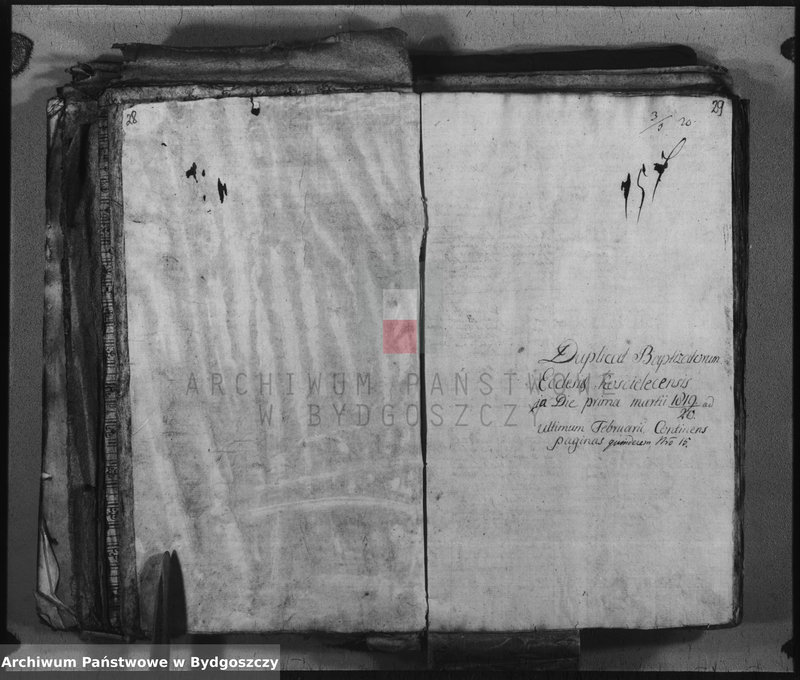 28
29
3/3 20
157
Duplicat Baptisatorum
Eccles Koscielecensis
a Die prima martii 1819/20 ad
ultimum Februarii, Continens
paginas quindecem Nro 15.
ARCHIWUM PAŃSTWOWE
W BYDGOSZCZY
Archiwum Państwowe w Bydgoszczy